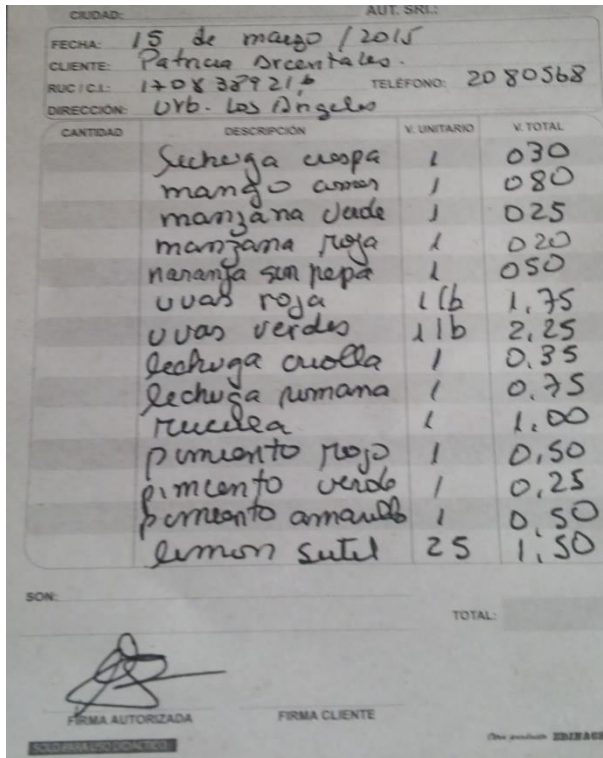 CIUDAD: AUT. SRI.:
FECHA: 15 de marzo / 2015
CLIENTE: Patricia Arcentales.
RUC / C.I.: TELÉFONO: 2080568
DIRECCIÓN: Urb. Los Angeles
CANTIDAD DESCRIPCIÓN V. UNITARIO V. TOTAL
Lechuga crespa 1 030
mango 1 080
manzana verde 1 025
manzana roja 1 020
naranja sin pepa 1 050
uvas roja 1 lb 1,75
uvas verdes 1 lb 2,25
lechuga criolla 1 0.35
lechuga romana 1 0.75
1 1.00
pimiento rojo 1 0,50
pimiento verde 1 0,25
pimiento amarillo 1 0,50
limon sutil 25 1,50
SON:
TOTAL:
FIRMA AUTORIZADA FIRMA CLIENTE
SOLO PARA USO DIDÁCTICO